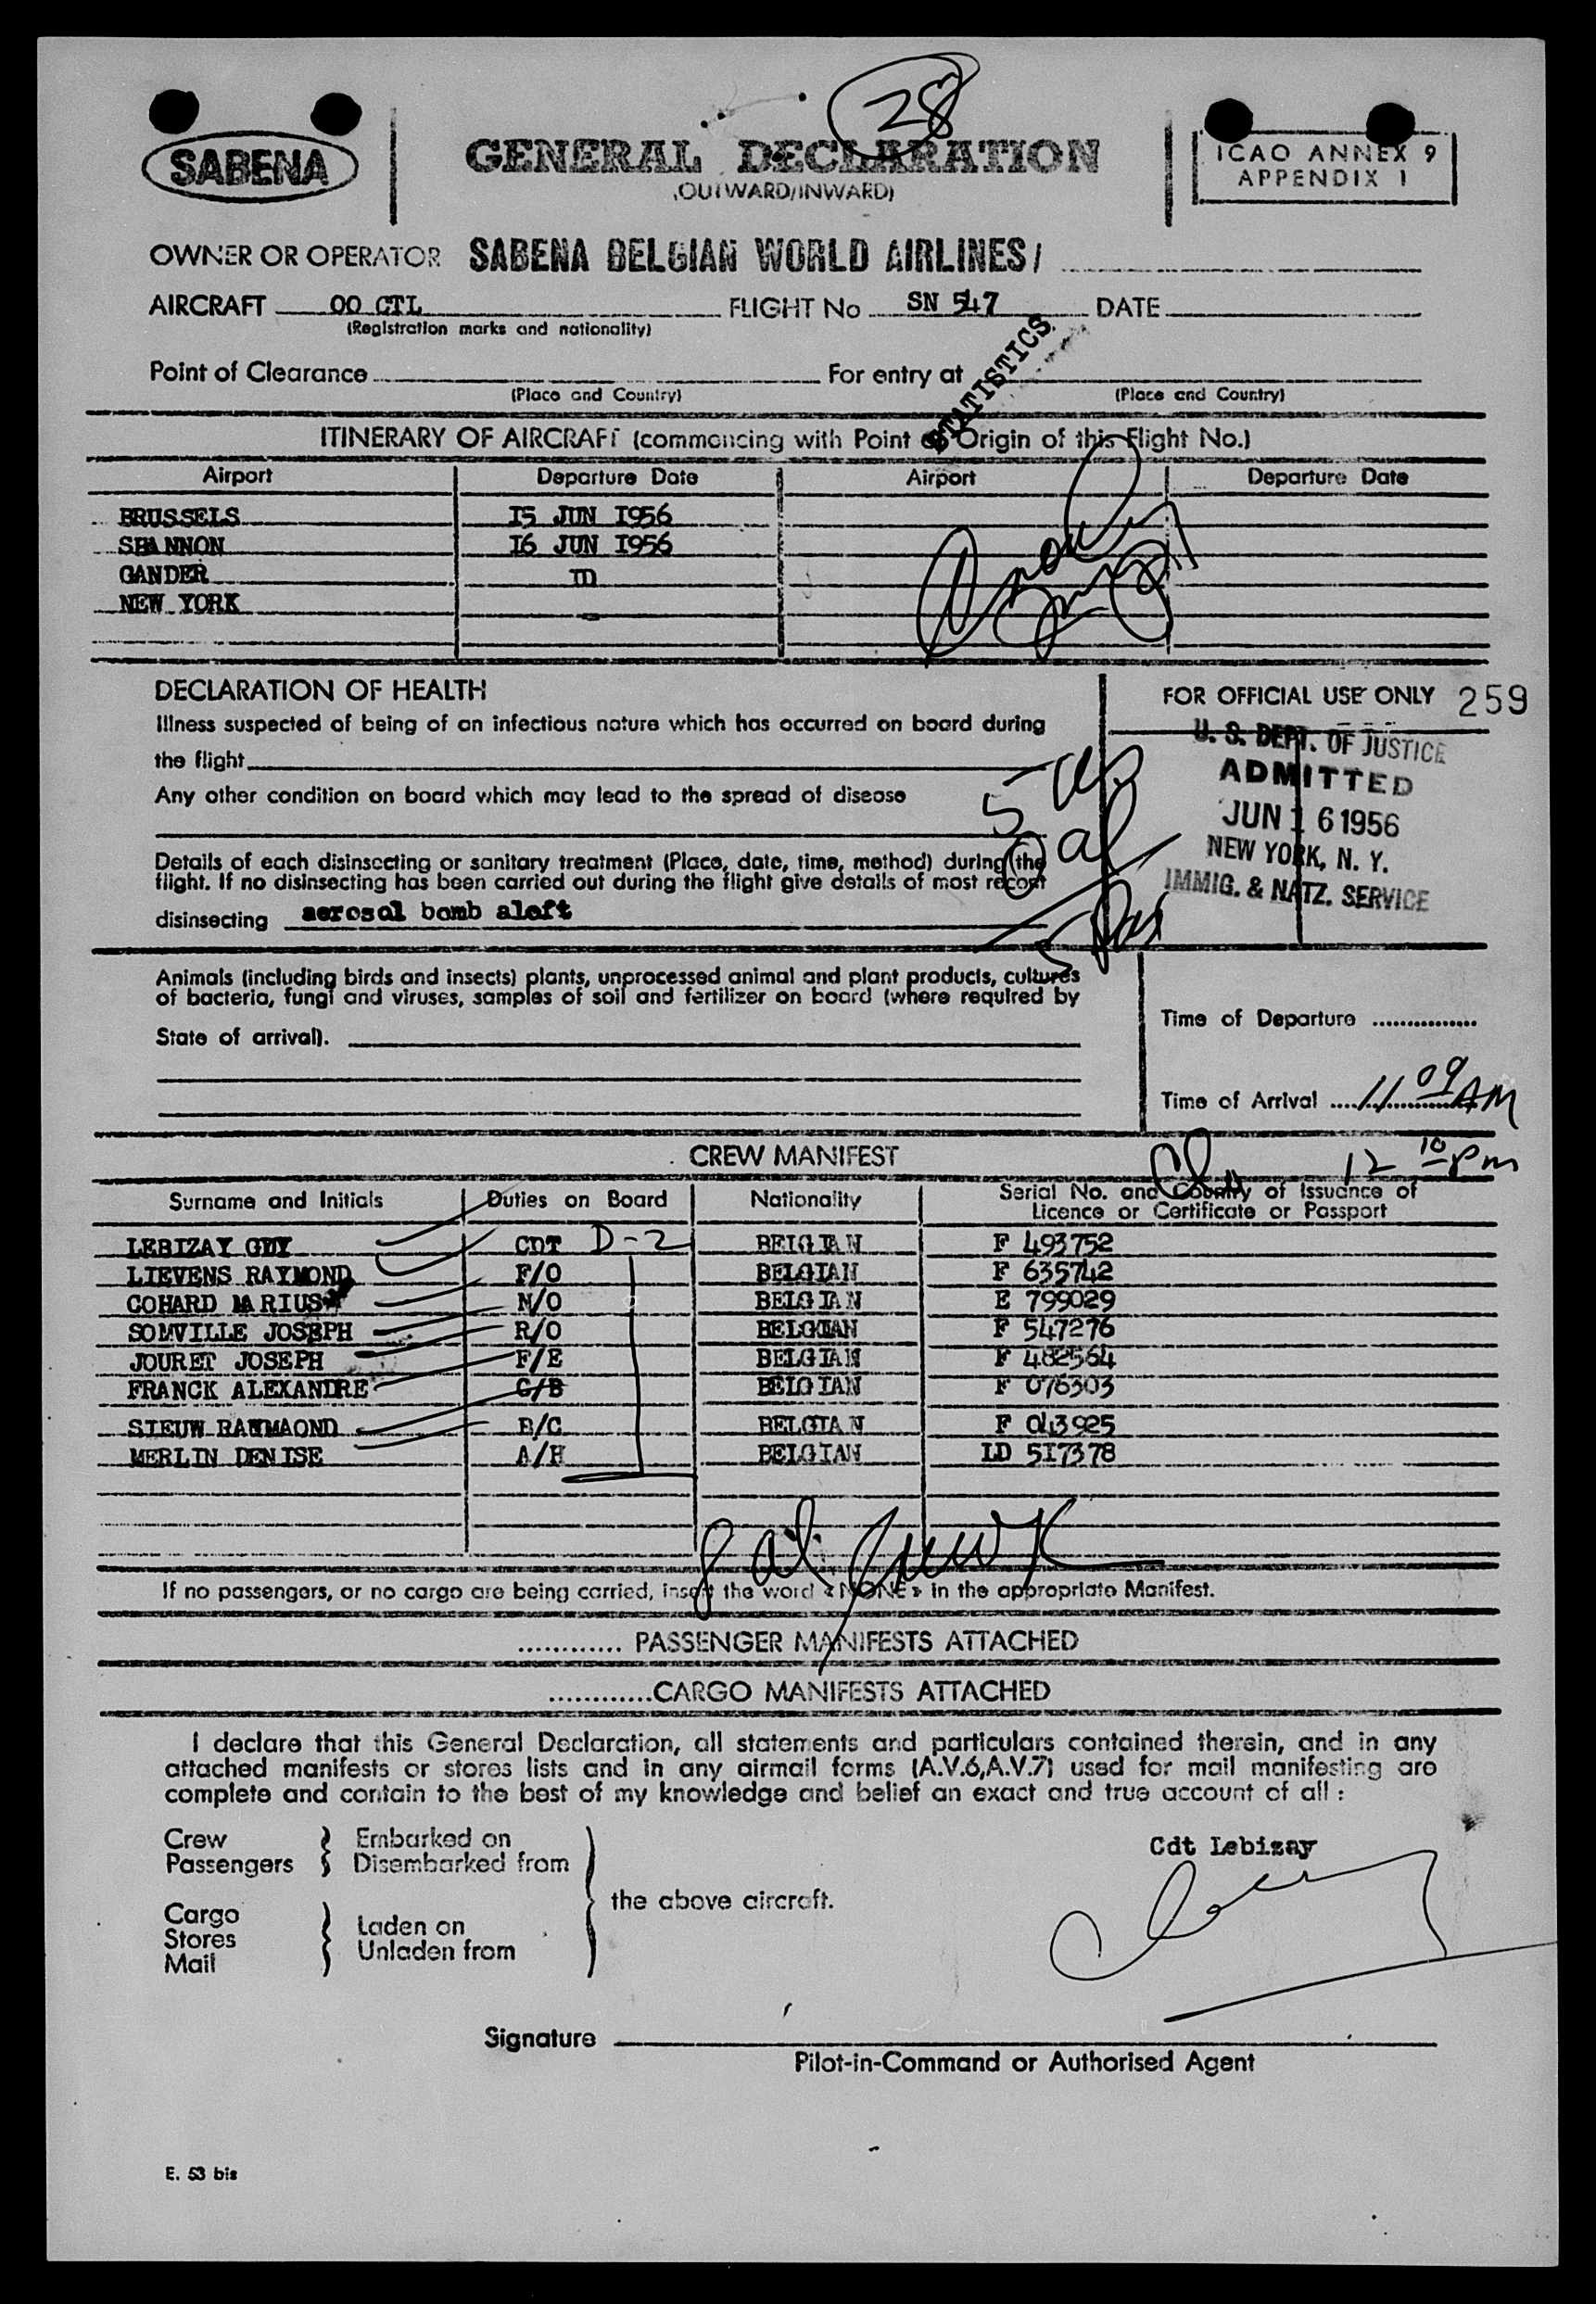 28
SABENA
GENERAL DECLARATION
(OUTWARD/INWARD)
ICAO ANNEX 9
APPENDIX 1
OWNER OR OPERATOR SABENA BELGIAN WORLD AIRLINES/
AIRCRAFT OO CTL FLIGHT No SN 547 DATE
(Registration marks and nationality)
STATISTICS
Point of Clearance For entry at
(Place and Country) (Place and Country)
ITINERARY OF AIRCRAFT (commencing with Point of Origin of this Flight No.)
Airport Departure Date Airport Departure Date
BRUSSELS I5 JUN I956
SHANNON I6 JUN I956
GANDER ID
NEW YORK -
DECLARATION OF HEALTH
Illness suspected of being of an infectious nature which has occurred on board during
the flight
Any other condition on board which may lead to the spread of disease
Details of each disinsecting or sanitary treatment (Place, date, time, method) during the
flight. If no disinsecting has been carried out during the flight give details of most recent
disinsecting aerosol bomb aloft
FOR OFFICIAL USE ONLY 259
U. S. DEPT. OF JUSTICE
ADMITTED
JUN 16 1956
NEW YORK, N. Y.
IMMIG. & NATZ. SERVICE
Animals (including birds and insects) plants, unprocessed animal and plant products, cultures
of bacteria, fungi and viruses, samples of soil and fertilizer on board (where required by
State of arrival).
Time of Departure
Time of Arrival 11 09 AM
12 10 pm
CREW MANIFEST
Surname and Initials Duties on Board Nationality Serial No. and Country of Issuance of
Licence or Certificate or Passport
LEBIZAY GUY CDT D-2 BELGIAN F 493752
LIEVENS RAYMOND F/O BELGIAN F 635742
COHARD MARIUS N/O BELGIAN E 799029
SOMVILLE JOSEPH R/O BELGIAN F 547276
JOURET JOSEPH F/E BELGIAN F 482564
FRANCK ALEXANDRE C/B BELGIAN F 076303
SIEUW RAYMAOND B/C BELGIAN F 043925
MERLIN DENISE A/H BELGIAN LD 5I7378
If no passengers, or no cargo are being carried, insert the word «NONE» in the appropriate Manifest.
............ PASSENGER MANIFESTS ATTACHED
............CARGO MANIFESTS ATTACHED
I declare that this General Declaration, all statements and particulars contained therein, and in any
attached manifests or stores lists and in any airmail forms (A.V.6,A.V.7) used for mail manifesting are
complete and contain to the best of my knowledge and belief an exact and true account of all :
Crew Embarked on
Passengers Disembarked from
the above aircraft.
Cargo
Stores Laden on
Mail Unladen from
Cdt Lebizay
Signature
Pilot-in-Command or Authorised Agent
E. 53 bis